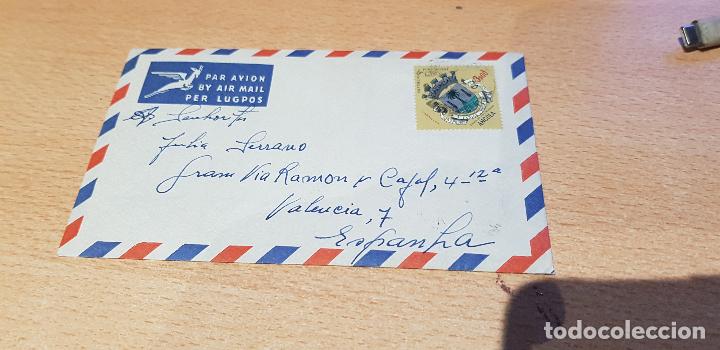 PAR AVION
BY AIR MAIL
PER LUGPOS
ANGOLA
Julia Serrano
Gram Via Ramon y Cajal, 4-12ª
Valencia, 7
Espanha
todocoleccion
todocoleccion.net